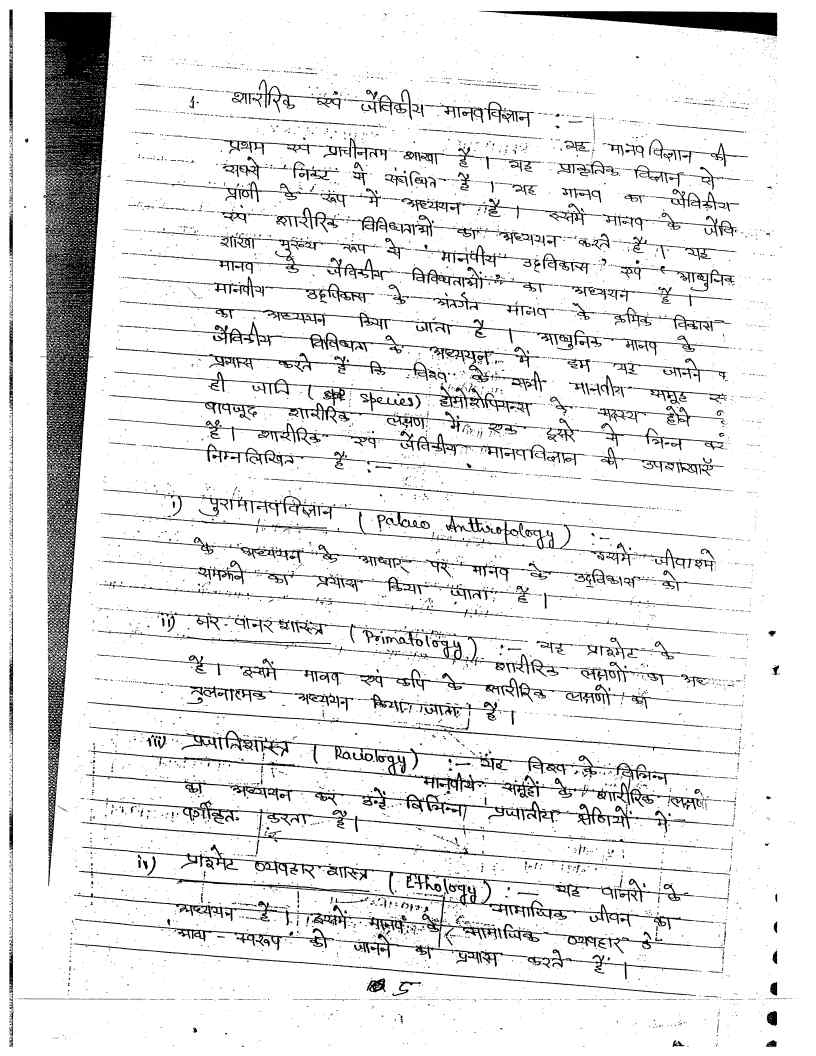 1. शारीरिक एवं जैविकीय मानवविज्ञान :-
यह मानवविज्ञान की
प्रथम एवं प्राचीनतम शाखा है । यह प्राकृतिक विज्ञान से
सबसे निकट से संबंधित है । यह मानव का जैविकीय
प्राणी के रूप में अध्ययन है । इसमें मानव के जैवि
एवं शारीरिक विविधताओं का अध्ययन करते हैं । यह
शाखा मुख्य रूप से 'मानवीय उद्दविकास' एवं 'आधुनिक
मानव के जैविकीय विविधताओं' का अध्ययन है ।
मानवीय उद्दविकास के अंतर्गत मानव के क्रमिक विकास
का अध्ययन किया जाता है । आधुनिक मानव के
जैविकीय विविधता के अध्ययन में हम यह जानने
प्रयास करते हैं कि विश्व के सभी मानवीय समूह
ही जाति ( species) होमोसेपियन्स के सदस्य होने
बावजूद शारीरिक लक्षण में एक दूसरे से भिन्न
हैं । शारीरिक एवं जैविकीय मानवविज्ञान की उपशाखाएँ
निम्नलिखित है :-
i) पुरामानवविज्ञान ( Palaeo Anthropology) :-
इसमें जीवाश्मो
के अध्ययन के आधार पर मानव के उद्दविकास को
समझने का प्रयास किया जाता है ।
ii) नर वानर शास्त्र ( Primatology) :- यह प्राइमेट के
शारीरिक लक्षणों का अध
है । इसमें मानव एवं कपि के शारीरिक लक्षणों का
तुलनात्मक अध्ययन किया जाता है ।
iii) प्रजातिशास्त्र ( Raciology) :- यह विश्व के विभिन्न
मानवीय समूहों के शारीरिक लक्षणो
का अध्ययन कर उन्हें विभिन्न प्रजातीय श्रेणियों में
वर्गीकृत करता है ।
iv) प्राइमेट व्यवहार शास्त्र ( Ethology) :- यह वानरों के
सामाजिक जीवन का
अध्ययन है । इसमें मानव के सामाजिक व्यवहार के
स्वरूप को जानने का प्रयास करते हैं ।
5